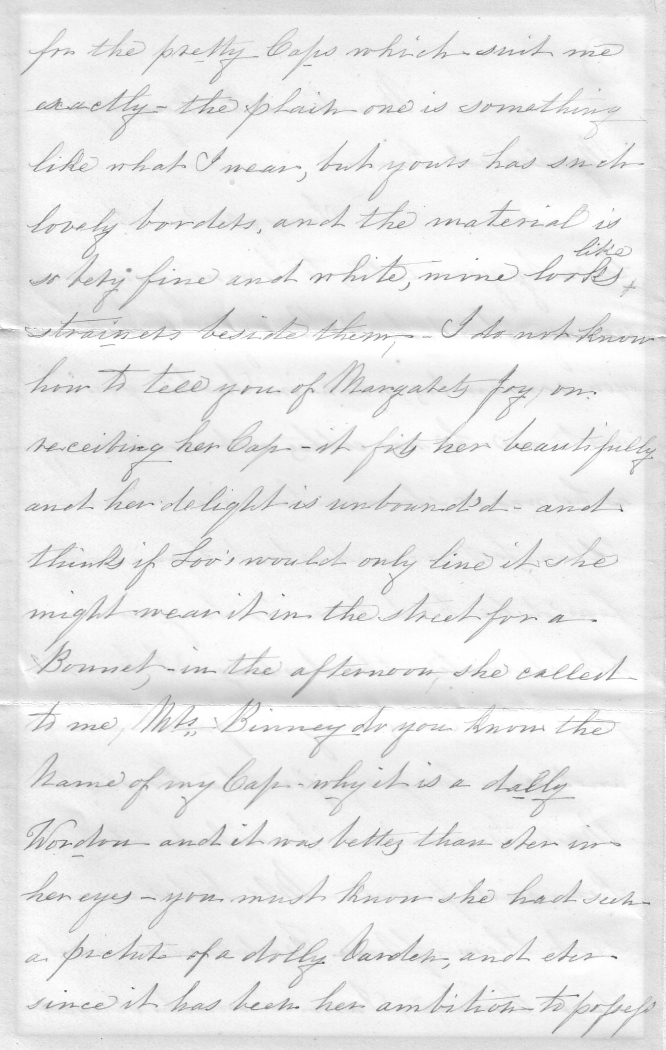 for the pretty Caps which suit me
exactly - the plain one is something
like what I wear, but yours has such
lovely borders, and the material is
so very fine and white, mine looks like
strainers beside them, - I do not know
how to tell you of Margarets Joy, on
receiving her Cap - it fits her beautifully
and her delight is unbound'd - and
thinks if Lov's would only line it she
might wear it in the street for a
Bonnet, - in the afternoon, she called
to me, Mrs. Binney do you know the
name of my Cap - why it is a dally
Wordon and it was better than ever in
her eyes - you must know she had seen
a picture of a dolly Varden, and ever
since it has been her ambition to possess